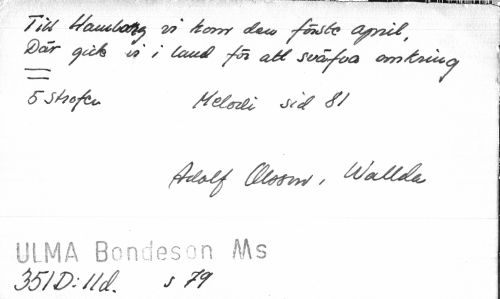 Till Hamburg vi kom den förste april,
Där gick vi i land för att svärfva omkring
5 strofer Melodi sid 81
Adolf Olsson, Wallda
ULMA Bondeson Ms
351D:11d. s 79